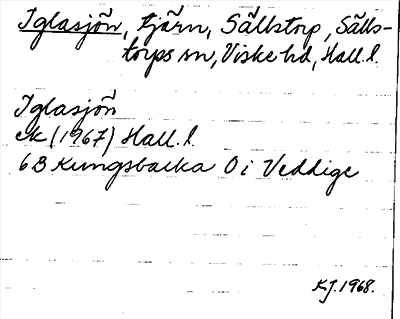 Iglasjön, tjärn, Sällstorp, Sälls-
torps sn, Viske hd, Hall. l.
Iglasjön
ek (1967) Hall. l.
6B Kungsbacka 0 i Veddige
KJ. 1968.